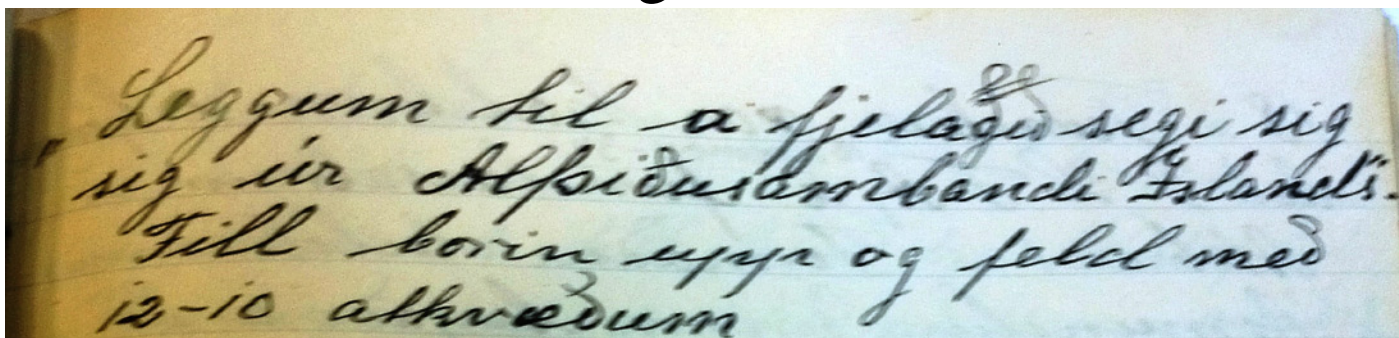 „Leggum til a fjelagið segi sig
sig úr Alþiðusambandi Íslands.
Till borin upp og feld með
12-10 atkvæðum